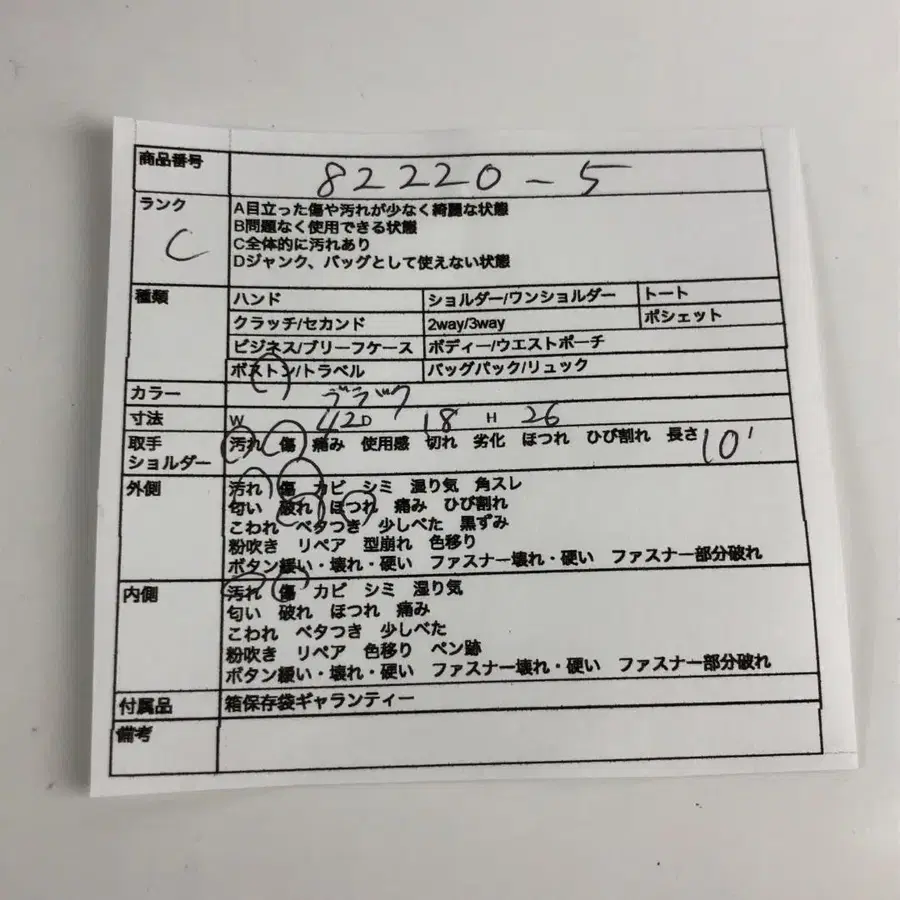 商品番号 82220-5
ランク C
A目立った傷や汚れが少なく綺麗な状態
B問題なく使用できる状態
C全体的に汚れあり
Dジャンク、バッグとして使えない状態
種類 ハンド ショルダー/ワンショルダー トート
クラッチ/セカンド 2way/3way ポシェット
ビジネス/ブリーフケース ボディー/ウエストポーチ
ボストン/トラベル バッグパック/リュック
カラー ブラック
寸法 W 42 D 18 H 26
取手 汚れ 傷 痛み 使用感 切れ 劣化 ほつれ ひび割れ 長さ 10
ショルダー
外側 汚れ 傷 カビ シミ 湿り気 角スレ
匂い 破れ ほつれ 痛み ひび割れ
こわれ ベタつき 少しべた 黒ずみ
粉吹き リペア 型崩れ 色移り
ボタン緩い・壊れ・硬い ファスナー壊れ・硬い ファスナー部分破れ
内側 汚れ 傷 カビ シミ 湿り気
匂い 破れ ほつれ 痛み
こわれ ベタつき 少しべた
粉吹き リペア 色移り ペン跡
ボタン緩い・壊れ・硬い ファスナー壊れ・硬い ファスナー部分破れ
付属品 箱保存袋ギャランティー
備考